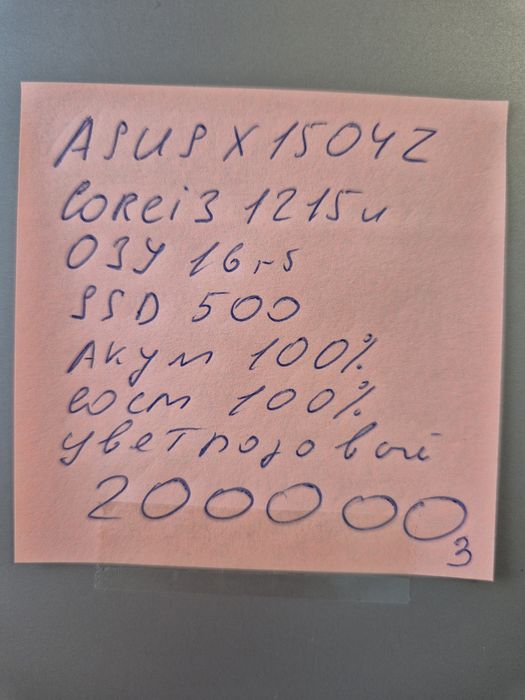 ASUS X1504Z
Corei3 1215u
ОЗУ 16гб
SSD 500
Акум 100%
сост 100%
цвет розовый
200000
3